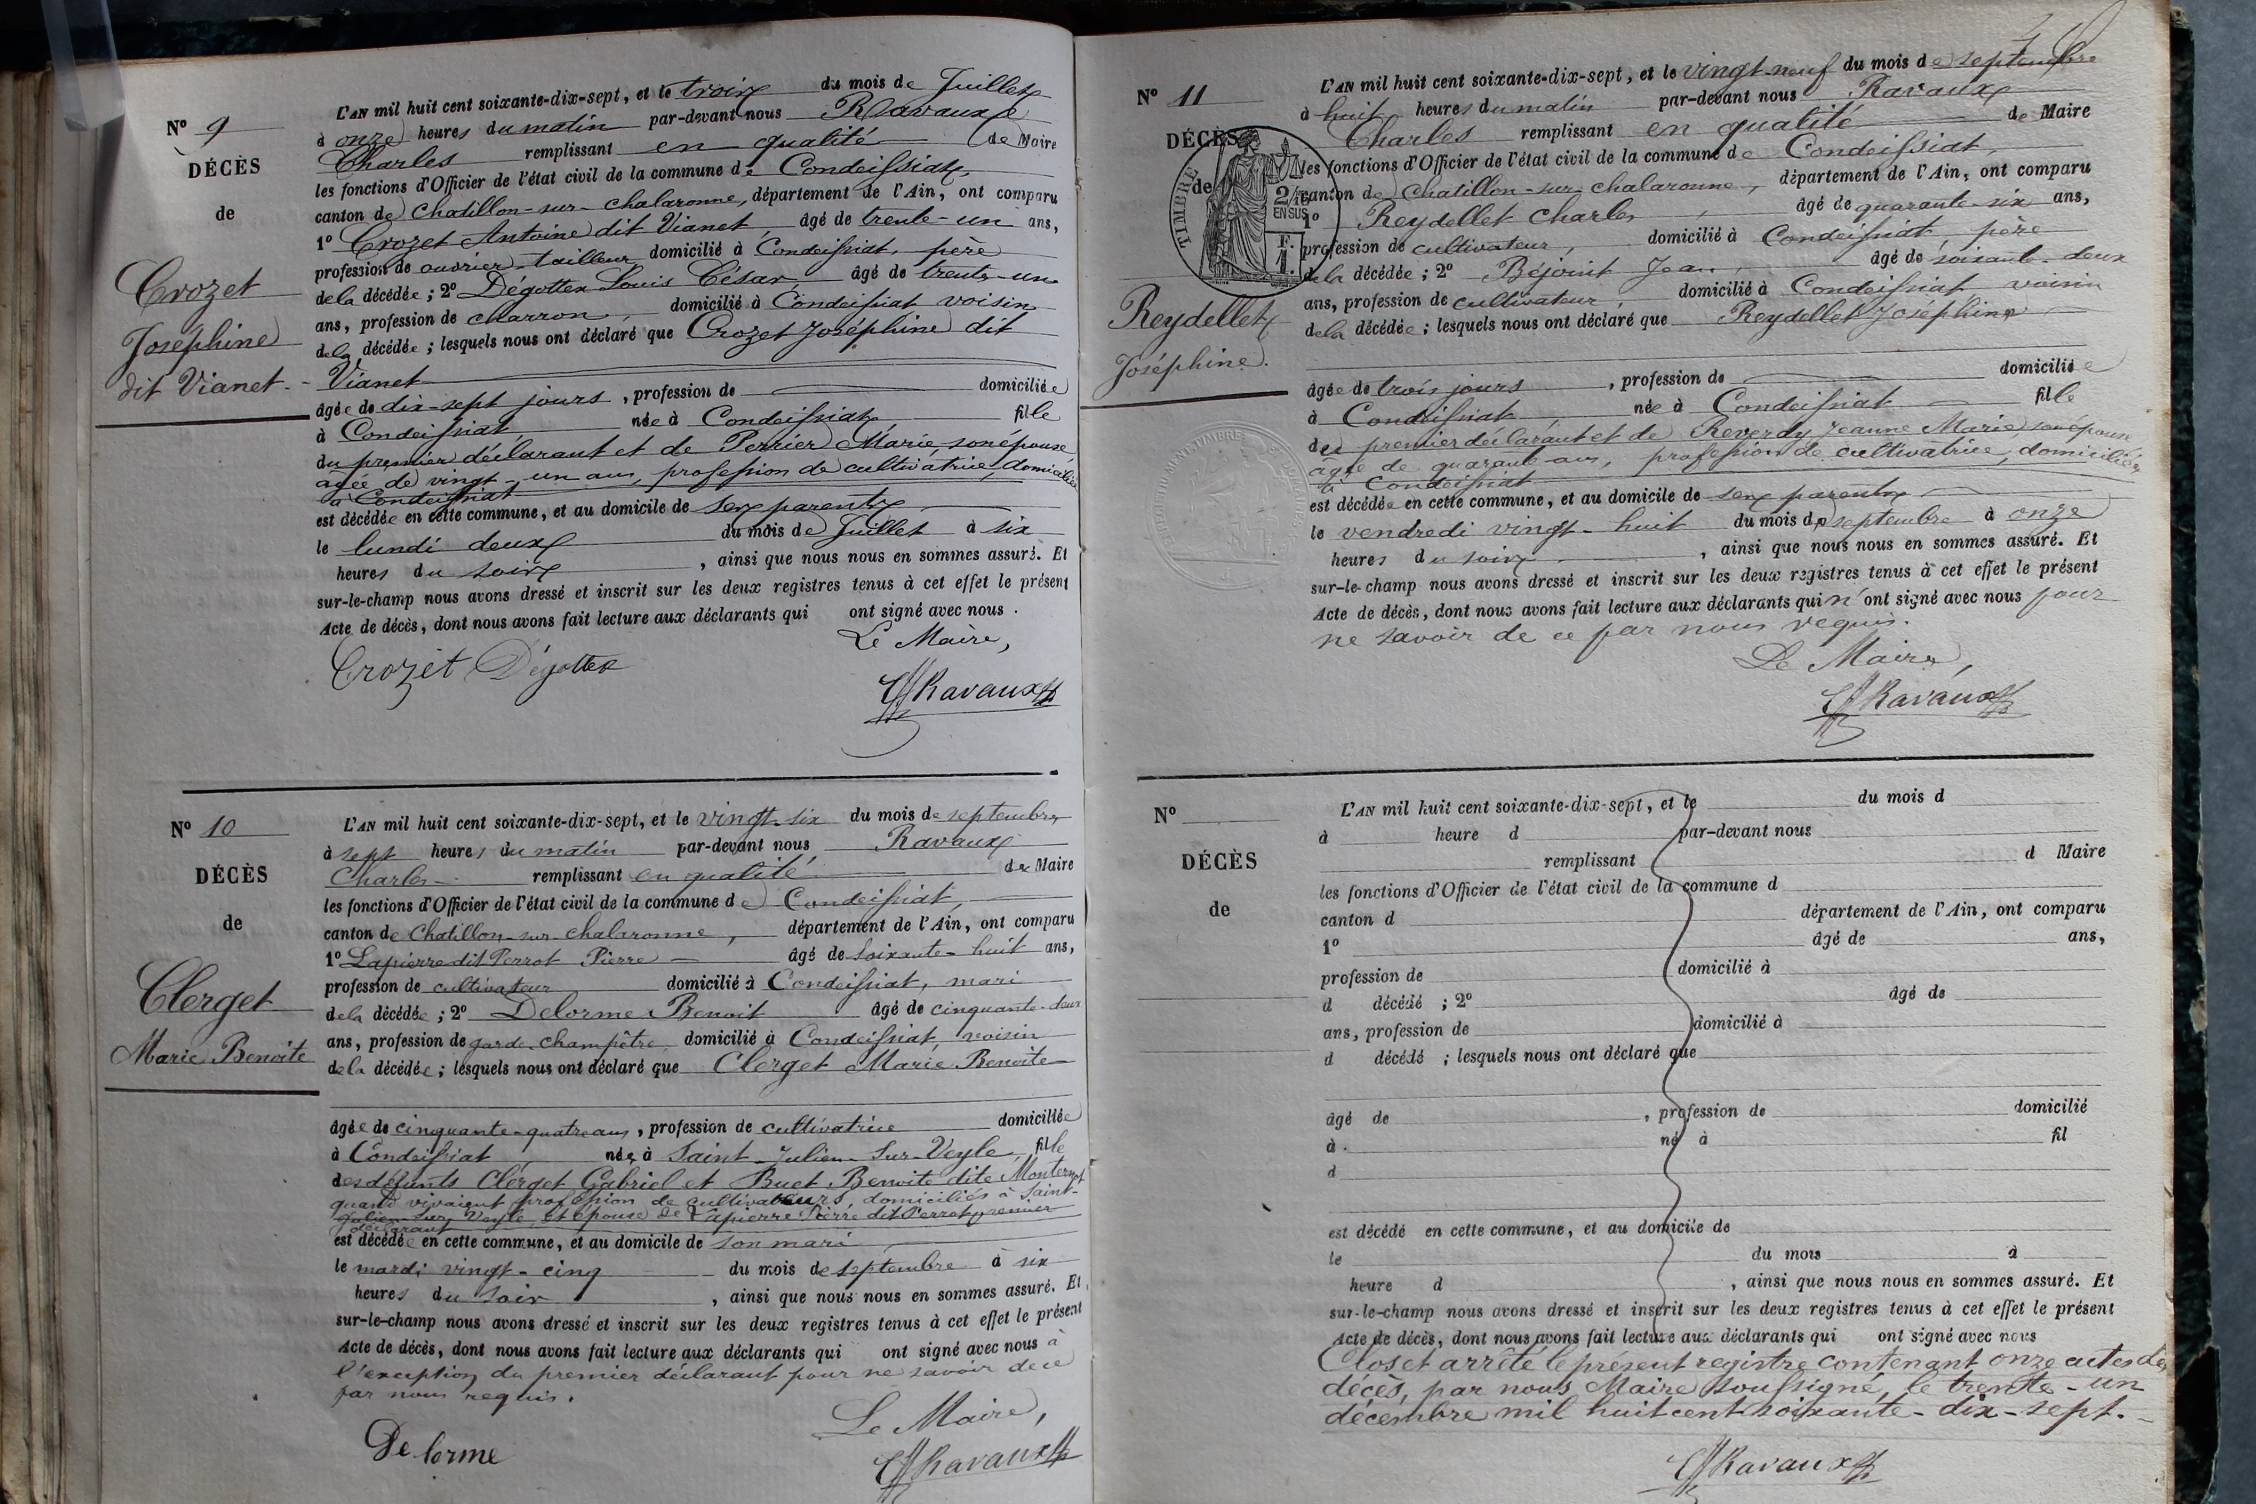 Nº 9
DÉCÈS
de
Crozet
Joséphine
dit Vianet
L'AN mil huit cent soixante-dix-sept, et le trois du mois de Juillet
à onze heures du matin par-devant nous Ravaux
Charles remplissant en qualité de Maire
les fonctions d'Officier de l'état civil de la commune de Condeissiat,
canton de Chatillon-sur-chalaronne, département de l'Ain, ont comparu
1º Crozet Antoine dit Vianet, âgé de trente-un ans,
profession de ouvrier tailleur domicilié à Condeissiat, père
de la décédée ; 2º Dégottex Louis César, âgé de trente-un
ans, profession de charron, domicilié à Condeissiat voisin
de la décédée ; lesquels nous ont déclaré que Crozet Joséphine dit
Vianet
âgée de dix-sept jours, profession de domiciliée
à Condeissiat née à Condeissiat fille
du premier déclarant et de Perrier Marie, son épouse
agée de vingt-un ans, profession de cultivatrice, domiciliée
à Condeissiat
est décédée en cette commune, et au domicile de ses parents
le lundi deux du mois de Juillet à six
heures du soir, ainsi que nous nous en sommes assuré. Et
sur-le-champ nous avons dressé et inscrit sur les deux registres tenus à cet effet le présent
Acte de décès, dont nous avons fait lecture aux déclarants qui ont signé avec nous.
Le Maire,
Crozet Dégottex
Ravaux
Nº 10
DÉCÈS
de
Clerget
Marie Benoite
L'AN mil huit cent soixante-dix-sept, et le vingt-six du mois de septembre
à sept heures du matin par-devant nous Ravaux
Charles remplissant en qualité de Maire
les fonctions d'Officier de l'état civil de la commune de Condeissiat,
canton de Chatillon-sur-chalaronne, département de l'Ain, ont comparu
1º Lapierre dit Perrot Pierre âgé de soixante-huit ans,
profession de cultivateur domicilié à Condeissiat, mari
de la décédée ; 2º Delorme Benoit âgé de cinquante-deux
ans, profession de garde-champêtre domicilié à Condeissiat, voisin
de la décédée ; lesquels nous ont déclaré que Clerget Marie Benoite
âgée de cinquante-quatre ans, profession de cultivatrice domiciliée
à Condeissiat, née à Saint-Julien-Sur-Veyle, fille
des défunts Clerget Gabriel et Buet Benoite dite
quand vivaient profession de cultivateurs, domiciliés à Saint-
Julien-sur Veyle, et épouse de Lapierre Pierre dit Perrot premier
déclarant
est décédée en cette commune, et au domicile de son mari
le mardi vingt-cinq du mois de septembre à six
heures du soir, ainsi que nous nous en sommes assuré. Et
sur-le-champ nous avons dressé et inscrit sur les deux registres tenus à cet effet le présent
Acte de décès, dont nous avons fait lecture aux déclarants qui ont signé avec nous à
l'exception du premier déclarant pour ne savoir de ce
par nous requis.
Le Maire,
Delorme
Ravaux
Nº 11
DÉCÈS
de
TIMBRE
2/10
EN SUS
F.
1.
Reydellet
Joséphine.
L'AN mil huit cent soixante-dix-sept, et le vingt-neuf du mois de septembre
à huit heures du matin par-devant nous Ravaux
Charles remplissant en qualité de Maire
les fonctions d'Officier de l'état civil de la commune de Condeissiat,
canton de Chatillon-sur-chalaronne, département de l'Ain, ont comparu
1º Reydellet Charles, âgé de quarante-six ans,
profession de cultivateur, domicilié à Condeissiat père
de la décédée ; 2º Béjoint Jean, âgé de soixante-deux
ans, profession de cultivateur, domicilié à Condeissiat voisin
de la décédée ; lesquels nous ont déclaré que Reydellet Joséphine
âgée de trois jours, profession de domiciliée
à Condeissiat, née à Condeissiat fille
du premier déclarant et de Reverdy Jeanne Marie, son épouse
agée de quarante ans, profession de cultivatrice, domiciliée
à Condeissiat
est décédée en cette commune, et au domicile de ses parents
le vendredi vingt-huit du mois de septembre à onze
heures du soir, ainsi que nous nous en sommes assuré. Et
sur-le-champ nous avons dressé et inscrit sur les deux registres tenus à cet effet le présent
Acte de décès, dont nous avons fait lecture aux déclarants qui n'ont signé avec nous pour
ne savoir de ce par nous requis.
Le Maire,
Ravaux
Nº
DÉCÈS
de
L'AN mil huit cent soixante-dix-sept, et le du mois d
à heure d par-devant nous
remplissant d Maire
les fonctions d'Officier de l'état civil de la commune d
canton d département de l'Ain, ont comparu
1º âgé de ans,
profession de domicilié à
d décédé ; 2º âgé de
ans, profession de domicilié à
d décédé ; lesquels nous ont déclaré que
âgé de , profession de domicilié
à né à fil
d
est décédé en cette commune, et au domicile de
le du mois à
heure d , ainsi que nous nous en sommes assuré. Et
sur-le-champ nous avons dressé et inscrit sur les deux registres tenus à cet effet le présent
Acte de décès, dont nous avons fait lecture aux déclarants qui ont signé avec nous
Clos et arrêté le présent registre contenant onze actes de
décès, par nous Maire soussigné, le trente-un
décembre mil huit cent soixante-dix-sept.
Ravaux